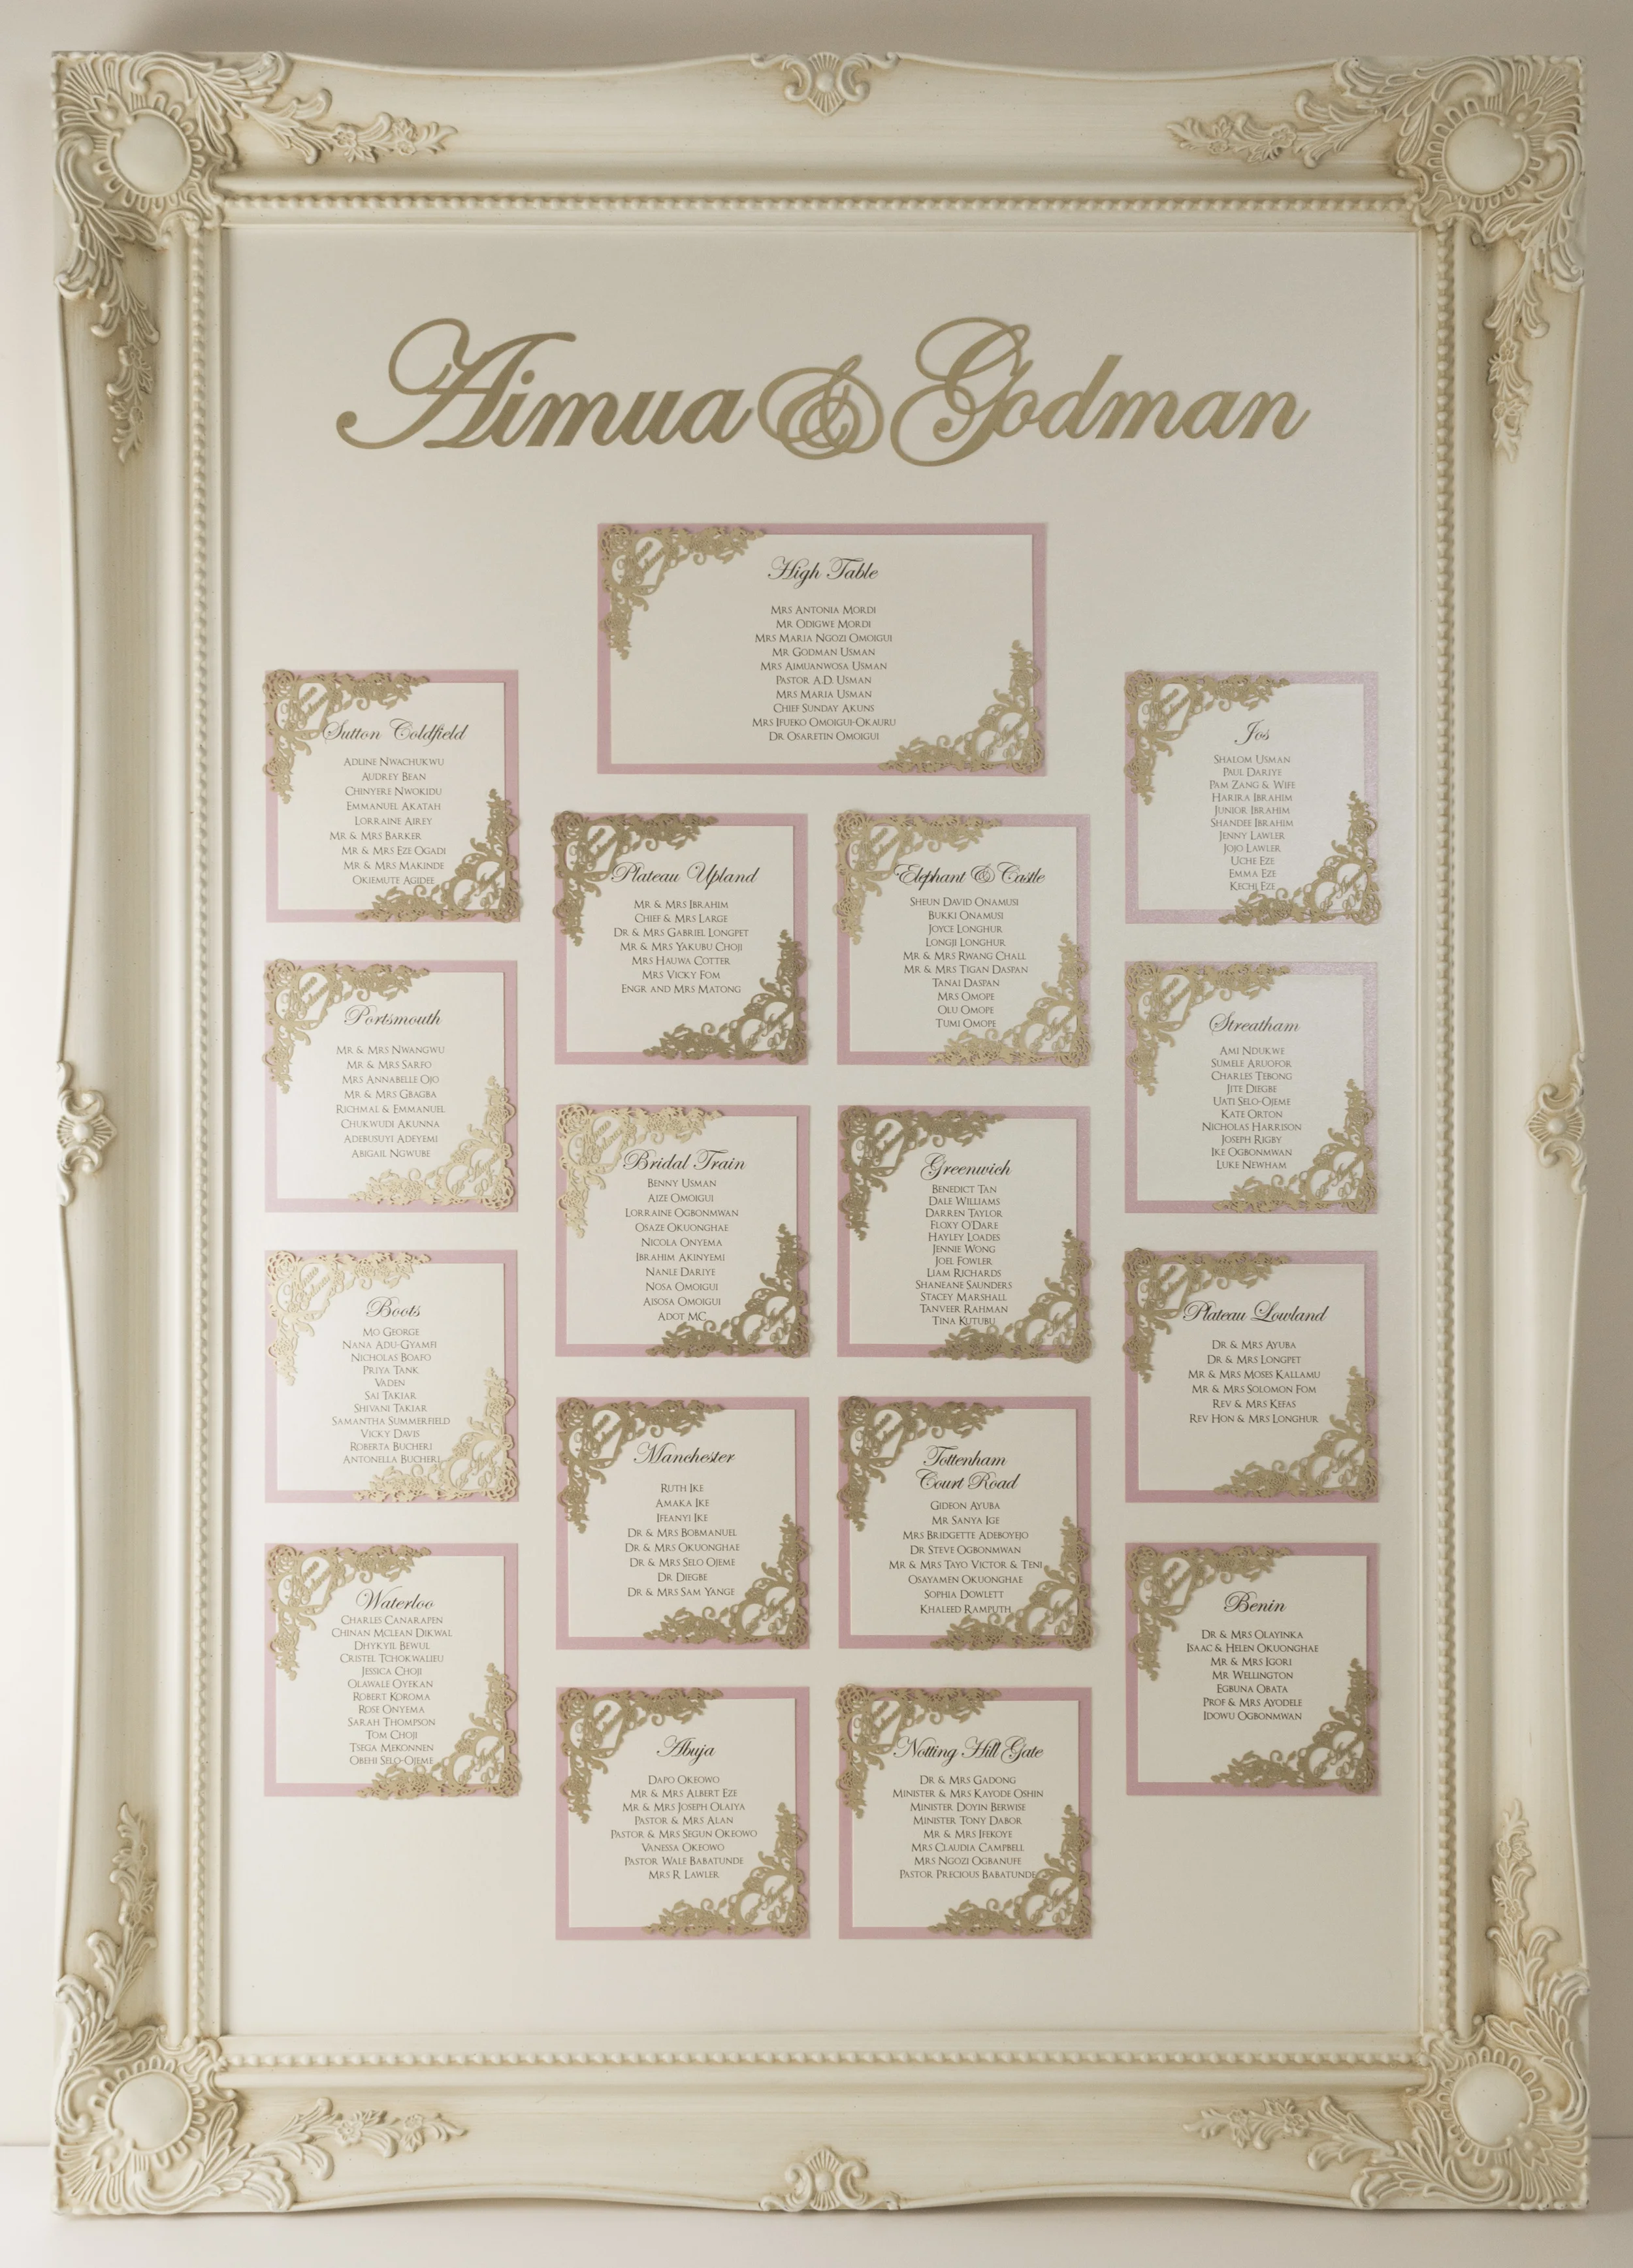 Aimua & Godman
High Table
Mrs Antonia Mordi
Mr Odigwe Mordi
Mrs Maria Ngozi Omoigui
Mr Godman Usman
Mrs Aimuanwosa Usman
Pastor A.D. Usman
Mrs Maria Usman
Chief Sunday Akuns
Mrs Ifueko Omoigui-Okauru
Dr Osaretin Omoigui
Sutton Coldfield
Adline Nwachukwu
Audrey Bean
Chinyere Nwokidu
Emmanuel Akatah
Lorraine Airey
Mr & Mrs Barker
Mr & Mrs Eze Ogadi
Mr & Mrs Makinde
Okiemute Agidee
Portsmouth
Mr & Mrs Nwangwu
Mr & Mrs Sarfo
Mrs Annabelle Ojo
Mr & Mrs Gbagba
Richmal & Emmanuel
Chukwudi Akunna
Adebusuyi Adeyemi
Abigail Ngwube
Boots
Mo George
Nana Adu-Gyamfi
Nicholas Boafo
Priya Tank
Vaden
Sai Takiar
Shivani Takiar
Samantha Summerfield
Vicky Davis
Roberta Bucheri
Antonella Bucheri
Waterloo
Charles Canarapen
Chinan McLean Dikwal
Dhykyil Bewul
Cristel Tchokwalieu
Jessica Choji
Olawale Oyekan
Robert Koroma
Rose Onyema
Sarah Thompson
Tom Choji
Tsega Mekonnen
Obehi Selo-Ojeme
Plateau Upland
Mr & Mrs Ibrahim
Chief & Mrs Large
Dr & Mrs Gabriel Longpet
Mr & Mrs Yakubu Choji
Mrs Hauwa Cotter
Mrs Vicky Fom
Engr and Mrs Matong
Bridal Train
Benny Usman
Aize Omoigui
Lorraine Ogbonmwan
Osaze Okuonghae
Nicola Onyema
Ibrahim Akinyemi
Nanle Dariye
Nosa Omoigui
Aisosa Omoigui
Adot MC
Manchester
Ruth Ike
Amaka Ike
Ifeanyi Ike
Dr & Mrs Bobmanuel
Dr & Mrs Okuonghae
Dr & Mrs Selo Ojeme
Dr Diegbe
Dr & Mrs Sam Yange
Abuja
Dapo Okeowo
Mr & Mrs Albert Eze
Mr & Mrs Joseph Olaiya
Pastor & Mrs Alan
Pastor & Mrs Segun Okeowo
Vanessa Okeowo
Pastor Wale Babatunde
Mrs R Lawler
Elephant & Castle
Sheun David Onamusi
Bukki Onamusi
Joyce Longhur
Longji Longhur
Mr & Mrs Rwang Chall
Mr & Mrs Tigan Daspan
Tanai Daspan
Mrs Omope
Olu Omope
Tumi Omope
Greenwich
Benedict Tan
Dale Williams
Darren Taylor
Floxy O'Dare
Hayley Loades
Jennie Wong
Joel Fowler
Liam Richards
Shaneane Saunders
Stacey Marshall
Tanveer Rahman
Tina Kutubu
Tottenham
Court Road
Gideon Ayuba
Mr Sanya Ige
Mrs Bridgette Adeboyejo
Dr Steve Ogbonmwan
Mr & Mrs Tayo Victor & Teni
Osayamen Okuonghae
Sophia Dowlett
Khaleed Ramputh
Notting Hill Gate
Dr & Mrs Gadong
Minister & Mrs Kayode Oshin
Minister Doyin Berwise
Minister Tony Dabor
Mr & Mrs Ifekoye
Mrs Claudia Campbell
Mrs Ngozi Ogbanufe
Pastor Precious Babatunde
Jos
Shalom Usman
Paul Dariye
Pam Zang & Wife
Harira Ibrahim
Junior Ibrahim
Shandee Ibrahim
Jenny Lawler
Jojo Lawler
Uche Eze
Emma Eze
Kechi Eze
Streatham
Ami Ndukwe
Sumele Aruofor
Charles Tebong
Jite Diegbe
Uati Selo-Ojeme
Kate Orton
Nicholas Harrison
Joseph Rigby
Ike Ogbonmwan
Luke Newham
Plateau Lowland
Dr & Mrs Ayuba
Dr & Mrs Longpet
Mr & Mrs Moses Kallamu
Mr & Mrs Solomon Fom
Rev & Mrs Kefas
Rev Hon & Mrs Longhur
Benin
Dr & Mrs Olayinka
Isaac & Helen Okuonghae
Mr & Mrs Igori
Mr Wellington
Egbuna Obata
Prof & Mrs Ayodele
Idowu Ogbonmwan